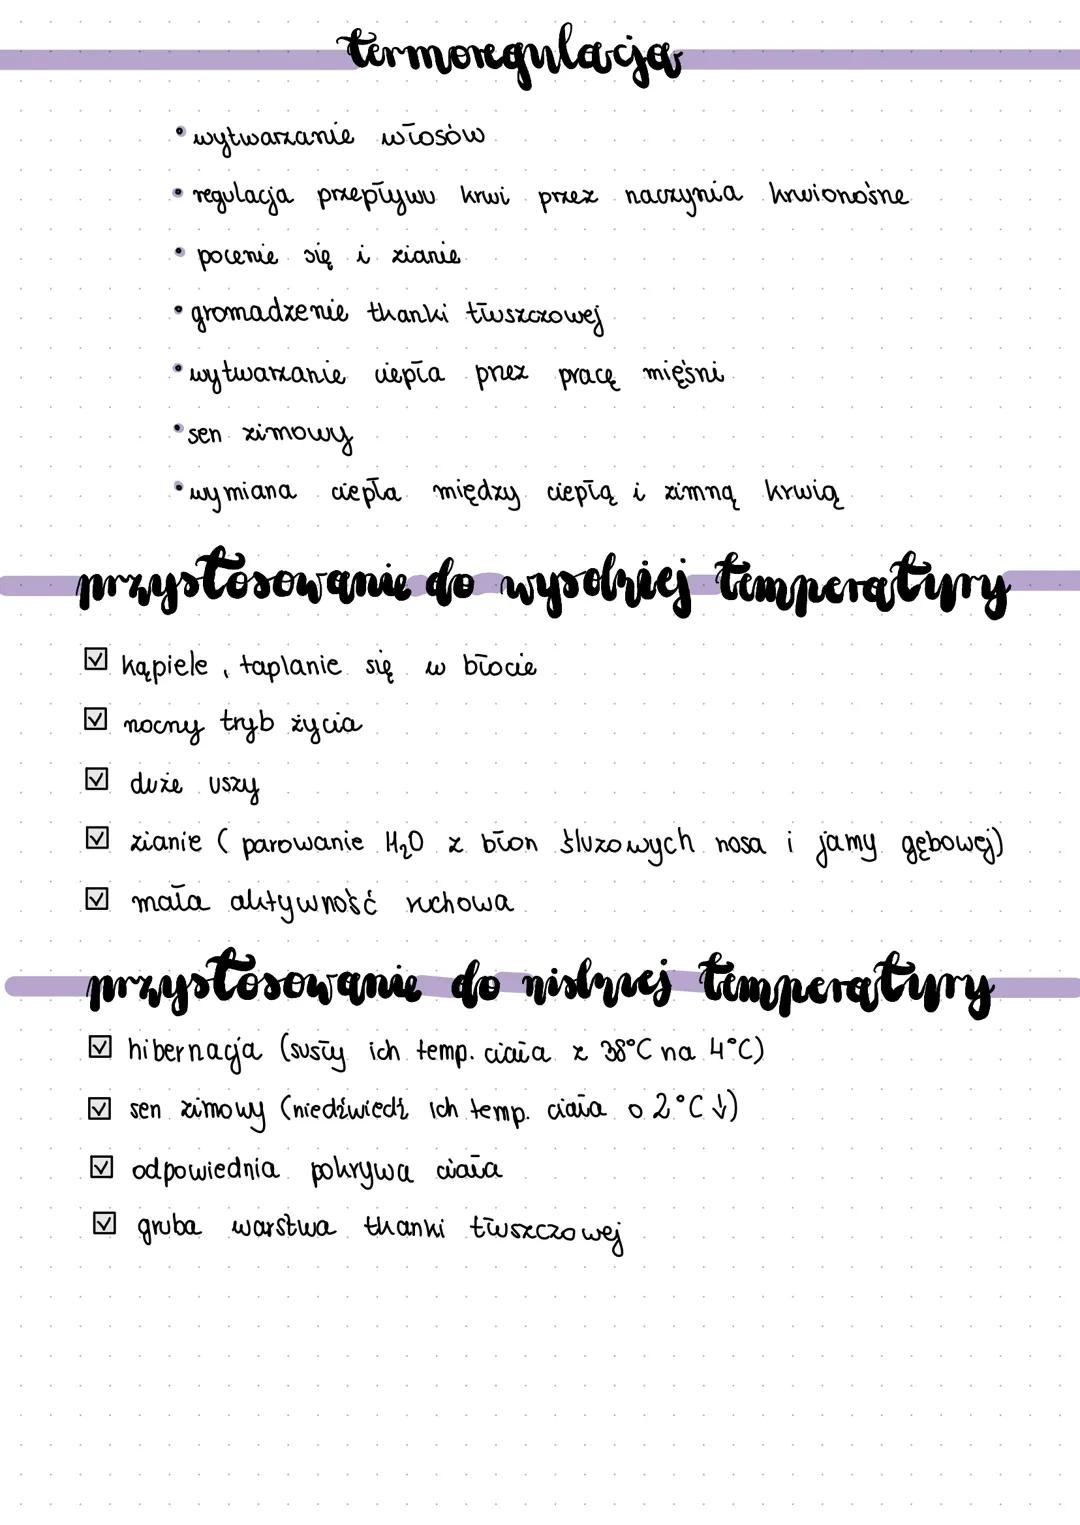 termoregulacja
• wytwarzanie włosów
• regulacja przepływu krwi przez naczynia krwionośne
• pocenie się i zianie
• gromadzenie tkanki tłuszczowej
• wytwarzanie ciepła przez pracę mięśni
• sen zimowy
• wymiana ciepła między ciepłą i zimną krwią
przystosowanie do wysokiej temperatury
☑ kąpiele, taplanie się w błocie
☑ nocny tryb życia
☑ duże uszy
☑ zianie (parowanie H₂O z błon śluzowych nosa i jamy gębowej)
☑ mała aktywność ruchowa
przystosowanie do niskiej temperatury
☑ hibernacja (susły ich temp. ciała z 38°C na 4°C)
☑ sen zimowy (niedźwiedź ich temp. ciała o 2°C ↓)
☑ odpowiednia pokrywa ciała
☑ gruba warstwa tkanki tłuszczowej